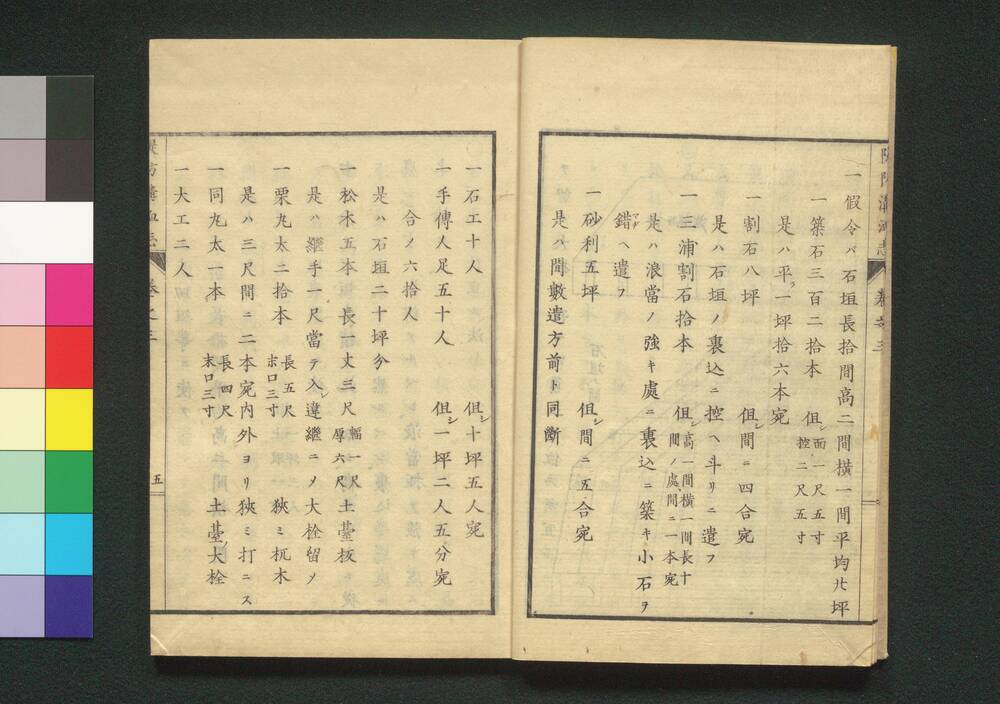 一假令バ石垣長拾間高二間横一間平均廾坪
一築石三百二拾本 但シ面一尺五寸 控二尺五寸
是ハ平ラ一坪拾六本宛
一割石八坪 但シ間ニ四合宛
是ハ石垣ノ裏込ニ控ヘ斗リニ遣フ
一三浦割石拾本 但シ高一間横一間長十間ノ處、間ニ一本宛
是ハ浪當ノ強キ處ニ裏込ニ築キ小石ヲ
錯ヘ遣フ
一砂利五坪 但シ間ニ五合宛
是ハ間數遣方前ト同斷
一石工十人 但シ十坪五人宛
一手傳人足五十人 但シ一坪二人五分宛
合〆六拾人
是ハ石垣二十坪分
一松木五本 長幅丈三尺 幅一尺 厚六尺 土䑓板
是ハ繼手一尺當テ入違繼ニメ大栓留メ
一栗丸太二拾本 長五尺 末口三寸 狹ミ杭木
是ハ三尺間ニ二本宛内外ヨリ狹ミ打ニス
一同丸太一本 長四尺 末口三寸 土䑓大栓
一大工二人
卷之三
五